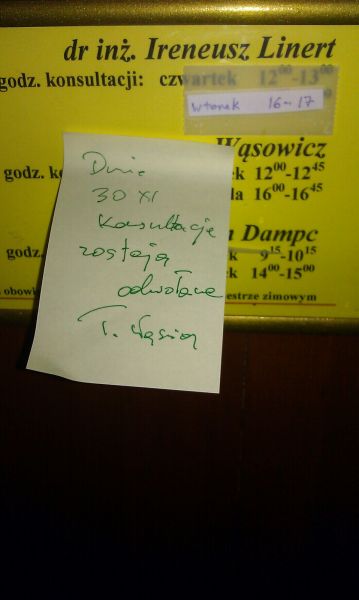 dr inż. Ireneusz Linert
godz. konsultacji: czwartek 12⁰⁰-13⁰⁰
wtorek 16-17
Wąsowicz
godz. k 12⁰⁰-12⁴⁵
16⁰⁰-16⁴⁵
Dampc
9¹⁵-10¹⁵
14⁰⁰-15⁰⁰
obowi estrze zimowym
Dnia
30 XI
konsultacje
zostają
odwołane
T. Wąsow